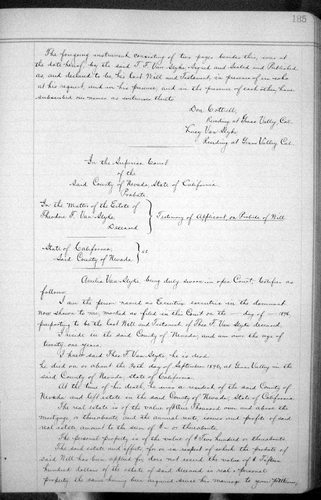 185
The foregoing instrument, consisting of two pages besides this, was at
the date hereof, by the said T. F. Van Slyke, signed and Sealed and Published
as and declared to be his last Will and Testament in presence of us who
at his request, and in his presence, and in the presence of each other, have
subscribed our names as witnesses thereto
Don Cottrell,
Residing at Grass Valley Cal.
Van Slyke
Residing at Grass Valley Cal.
In the Superior Court
of the
Said County of Nevada, State of California
Probate
In the Matter of the Estate of
Theodore F. Van Slyke,
Deceased
Testimony of Applicant, on Probate of Will
State of California,
Said County of Nevada
ss
Amelia Van Slyke, being duly sworn in open Court, testifies as
follows:
I am the person named as Executrix in the document
now shown to me, marked as filed in this Court on the day of 1896
purporting to be the last Will and Testament of Theo F. Van Slyke deceased,
I reside in the said County of Nevada, and am over the age of
twenty one years.
I knew said Theo F. Van Slyke he is dead,
he died on or about the day of September 1896, at Grass Valley in the
said County of Nevada, state of California.
At the time of his death, he was a resident of the said County of
Nevada and left estate in the said County of Nevada, State of California.
The real estate is of the value of Thousand over and above the
mortgage, or thereabouts, and the annual rents, issues and profits of said
real estate, amount to the sum of $ or thereabouts.
The personal property is of the value of Two hundred or thereabouts
The said estate and effects for or in respect of which the probate of
said Will has been applied for, does not exceed the value of $ Fifteen
hundred dollars of the estate of said deceased in real personal
property the same having been acquired since his marriage to